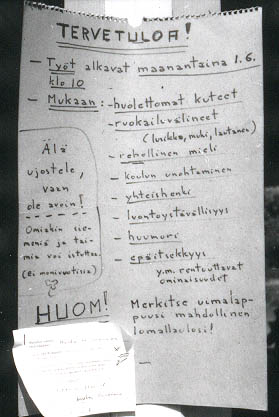 TERVETULOA!
- Työt alkavat maanantaina 1.6.
klo 10
- Mukaan: - huolettomat kuteet
- ruokailuvälineet
(lusikka, muki, lautanen)
- rehellinen mieli
- koulun unohtaminen
- yhteishenki
- luontoystävällisyys
- huumori
- epäitsekkyys
y.m. rentouttavat
ominaisuudet
Älä
ujostele,
vaan
ole avoin!
Omiakin sie-
meniä ja tai-
mia voi istuttaa.
(Ei monivuotisia)
HUOM!
Merkitse uimalap-
puusi mahdollinen
lomallaolosi!